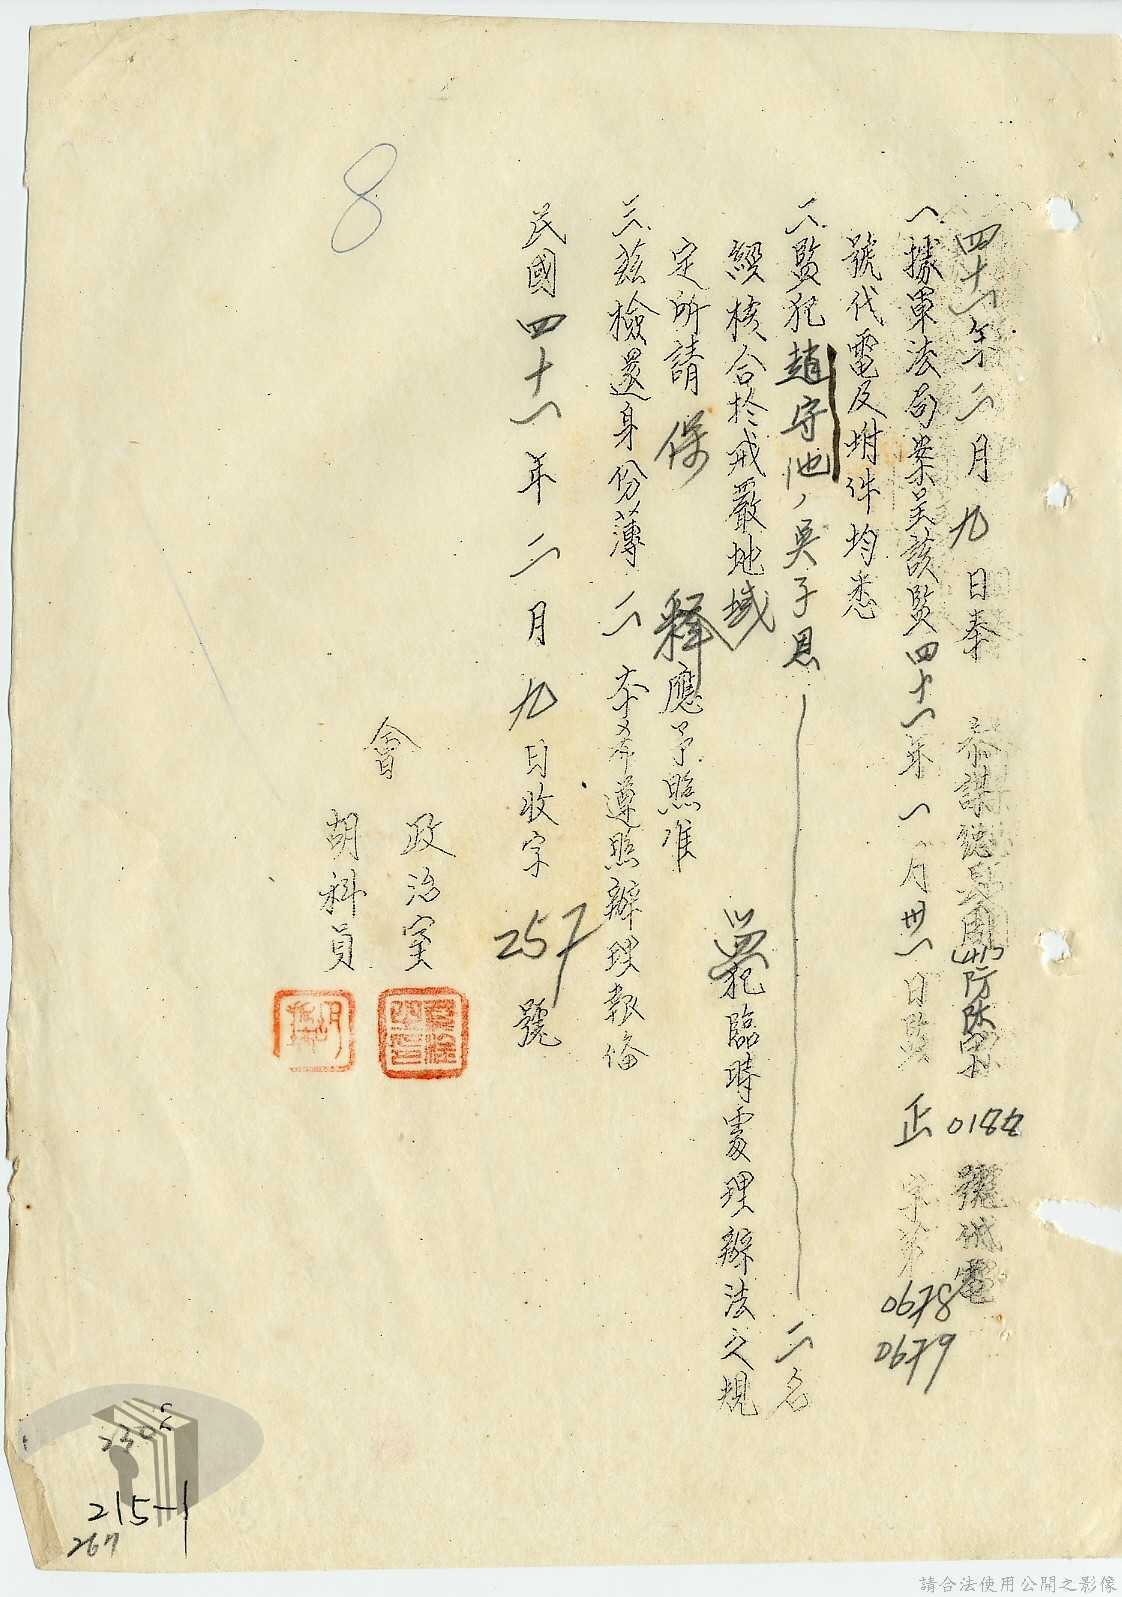 8
四十一年二月九日奉 參謀總長周(41)防隊 0188 號代電
一、據軍法局案呈該監四十一年一月卅一日監正字第0678 0679
號代電及坿件均悉
二、監犯趙守池、吳子恩 二名
經核合於戒嚴地域監犯臨時處理辦法之規
定所請保釋應予照准
三、茲檢還身份薄二本希遵照辦理報備
民國四十一年二月九日收字257號
會
政治室
胡科員
2302
215-1
267
請合法使用公開之影像